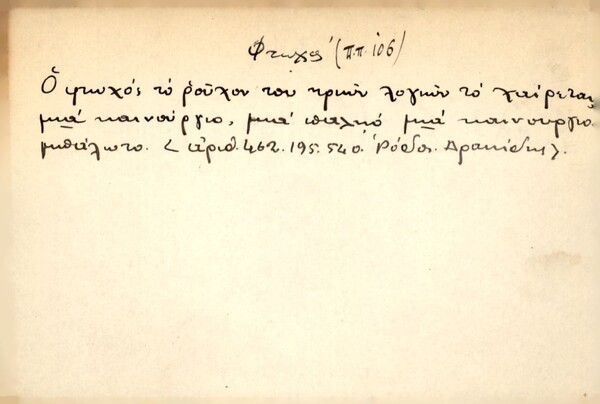 Φτωχός (Π.π. 106)
Ὁ φτωχός τό ροῦχον του τριῶν λογιῶν τό χαίρεται,
μιά καινούργιο, μιά παλαιό μιά καινουργιο
μπάλωτο. < ἀριθ. 462. 195. 540. Ῥόδος. Δρακίδης >.